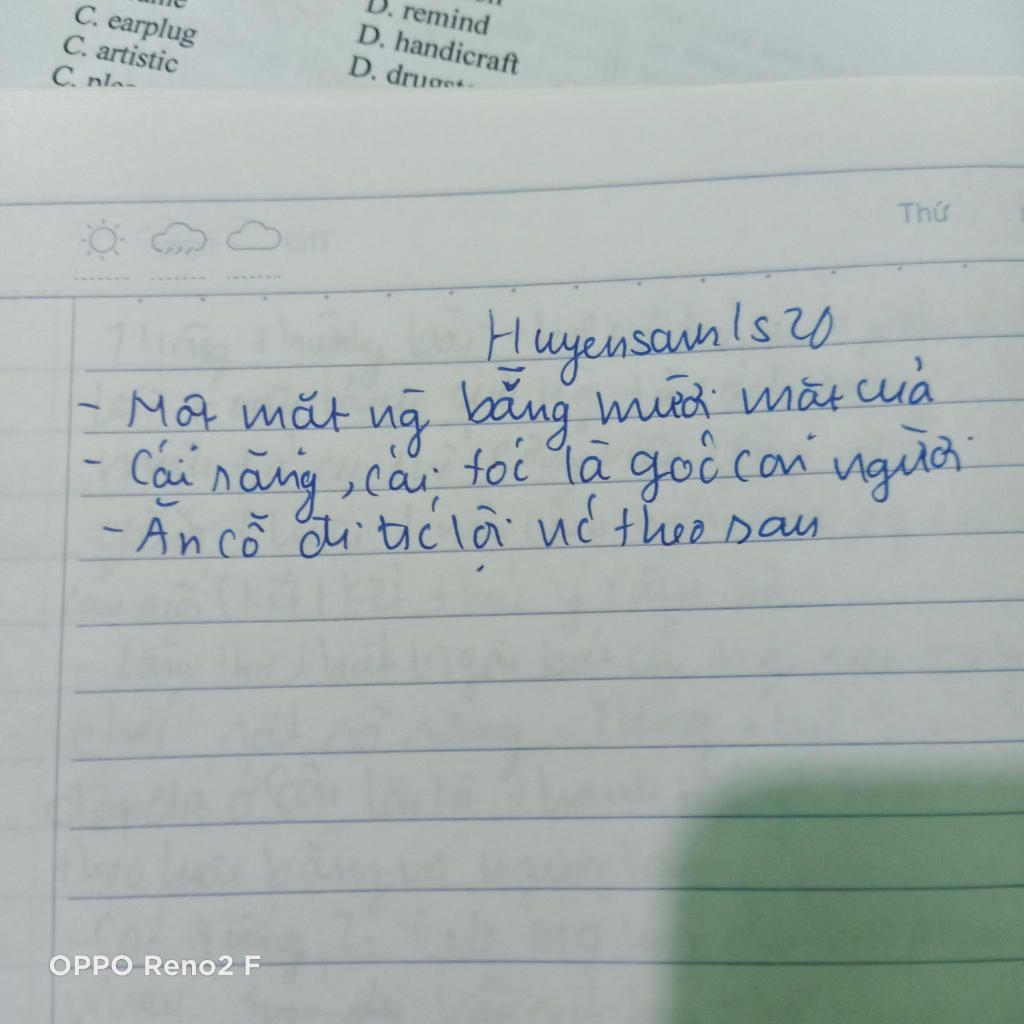 D. remind
C. earplug
D. handicraft
C. artistic
Thứ
Huyensam1s20
- Một mặt ng bằng mười mặt của
- Cái răng, cái tóc là gốc con người
- Ăn cỗ đi trc lội nc theo sau
OPPO Reno2 F